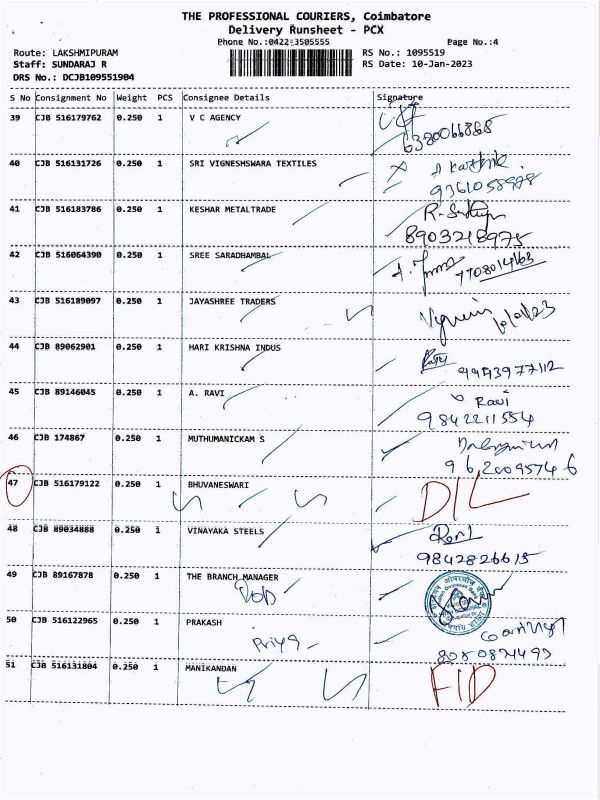 THE PROFESSIONAL COURIERS, Coimbatore
Delivery Runsheet - PCX
Phone No.:0422-3505555 Page No.:4
Route: LAKSHMIPURAM RS No.: 1095519
Staff: SUNDARAJ R RS Date: 10-Jan-2023
DRS No.: DCJB109551904
S No Consignment No Weight PCS Consignee Details Signature
39 CJB 516179762 0.250 1 V C AGENCY
6380066868
40 CJB 516131726 0.250 1 SRI VIGNESHSWARA TEXTILES
41 CJB 516183786 0.250 1 KESHAR METALTRADE
8903218975
42 CJB 516064390 0.250 1 SREE SARADHAMBAL
43 CJB 516189097 0.250 1 JAYASHREE TRADERS
44 CJB 89062901 0.250 1 HARI KRISHNA INDUS
45 CJB 89146045 0.250 1 A. RAVI Ravi
9842211554
46 CJB 174867 0.250 1 MUTHUMANICKAM S
9620095746
47 CJB 516179122 0.250 1 BHUVANESWARI D/L
48 CJB 89034888 0.250 1 VINAYAKA STEELS
9842826615
49 CJB 89167878 0.250 1 THE BRANCH MANAGER
50 CJB 516122965 0.250 1 PRAKASH
Priya
51 CJB 516131804 0.250 1 MANIKANDAN F/D